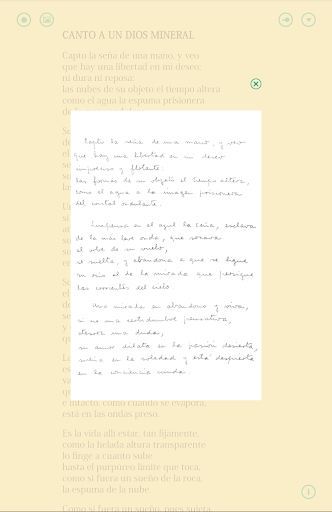 CANTO A UN DIOS MINERAL
Capto la seña de una mano, y veo
que hay una libertad en mi deseo;
ni dura ni reposa;
las nubes de su objeto el tiempo altera
como el agua la espuma prisionera
Capto la seña de una mano, y veo
que hay una libertad en un deseo
impetuoso y flotante.
las formas de su objeto el tiempo altera,
como el agua a la imagen prisionera
del cristal ondulante.
Suspensa en el azul la seña, esclava
de la más leve onda, que
el orbe de su vuelo,
se suelta, y abandona a que se ligue
su ocio el de la mirada que persigue
las corrientes del cielo
Una mirada en abandono y viva,
si no una certidumbre pensativa,
atesora una duda,
su amor dilata en la pasión desierta,
sueña en la soledad y está despierta
en la conciencia muda.
e intacto, como cuando se evapora,
está en las ondas preso.
Es la vida allí estar, tan fijamente,
como la helada altura transparente
lo finge a cuanto sube
hasta el purpúreo límite que toca,
como si fuera un sueño de la roca,
la espuma de la nube.
Como si fuera un sueño, pues sujeta